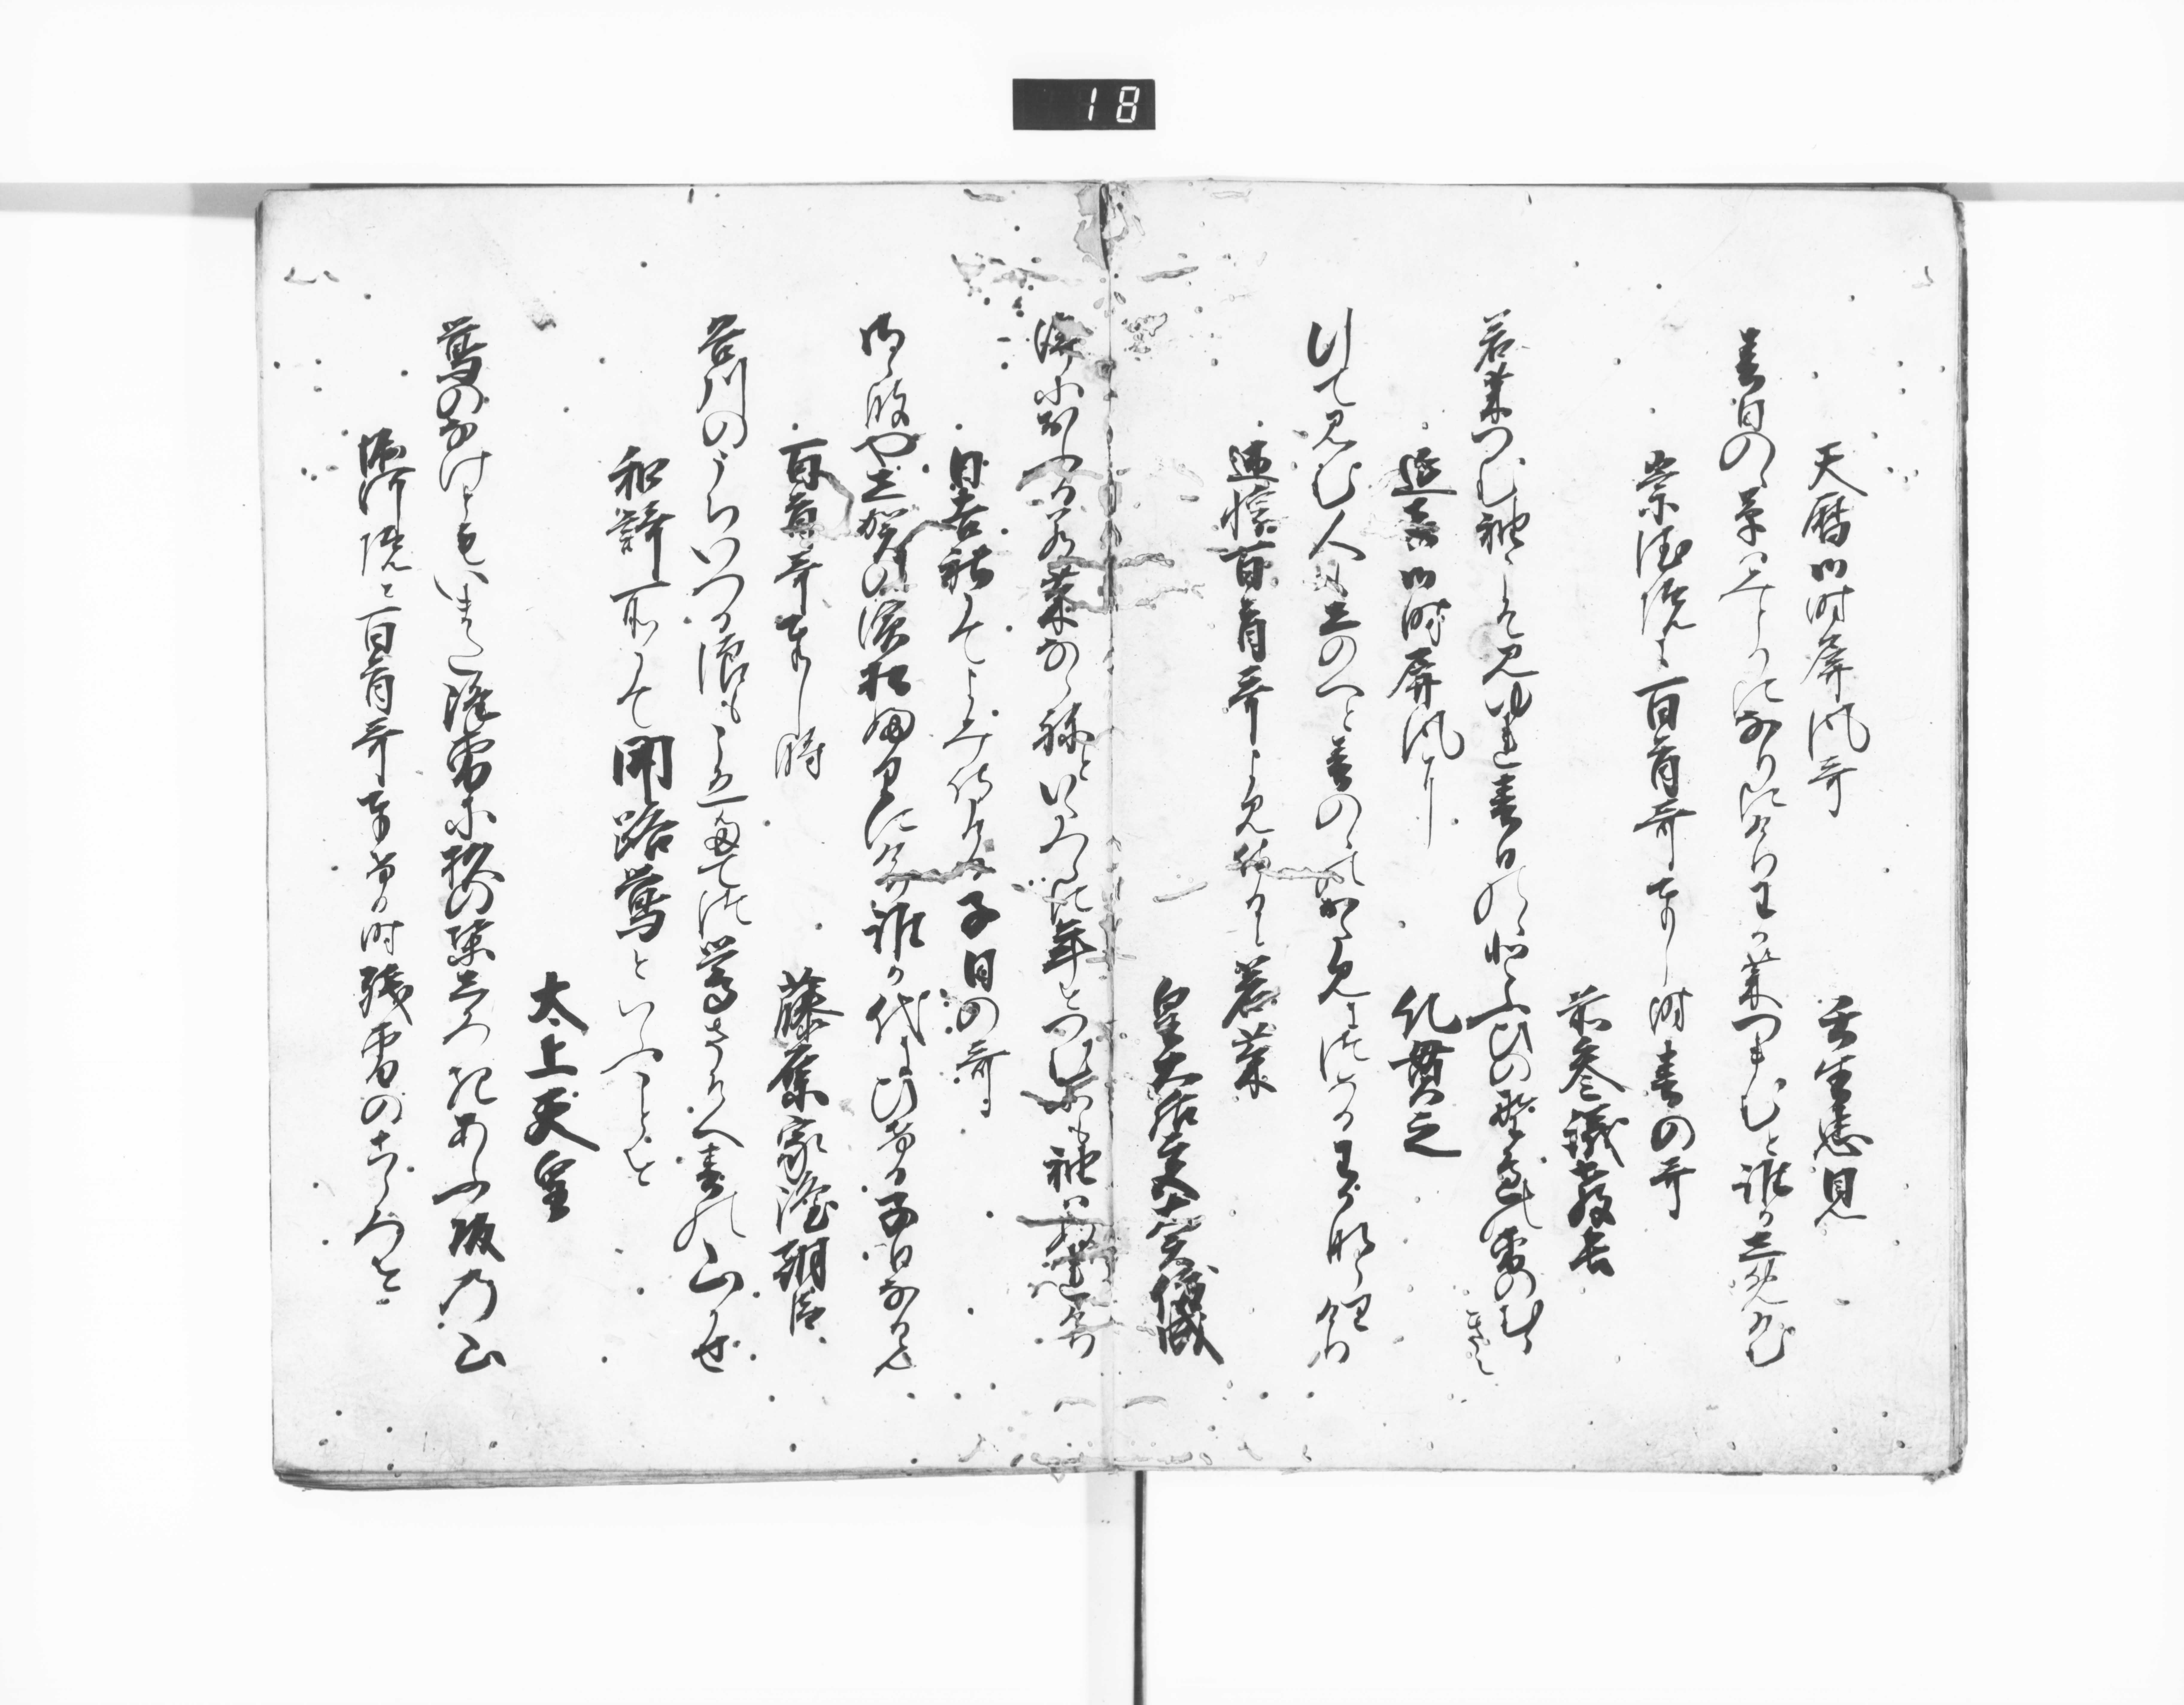 18
天暦御時屏風哥
壬生忠見
春日のゝ草はみとりになりにけりわか菜つまむと誰かしめけむ
崇徳院に百首哥奉し時春の哥
前参議教長
若菜つむ袖とそ見ゆる春日野のとふひの野邊の雪のむらきえ
延喜御時屏風に
紀貫之
行て見ぬ人もしのへと春のゝのかたみにつめるわかななりけり
述懐百首哥よみ侍ける若菜
皇太后宮大夫俊成
澤におふる若菜ならねといたつらに年をつむにも袖はぬれけり
日吉社にてよみ侍ける子日の哥
さゝ波や志賀の濱松ふりにけり誰か代にひける子日なるらん
百首哥奉し時
藤原家隆朝臣
谷川のうちいつる浪もこゑたてつ鶯さそへ春の山かせ
和謌所にて関路鶯といふことを
太上天皇
鶯のなけともいまたふる雪に松の葉しろきあふ坂の山
堀河院に百首哥奉ける時残雪のこゝろを